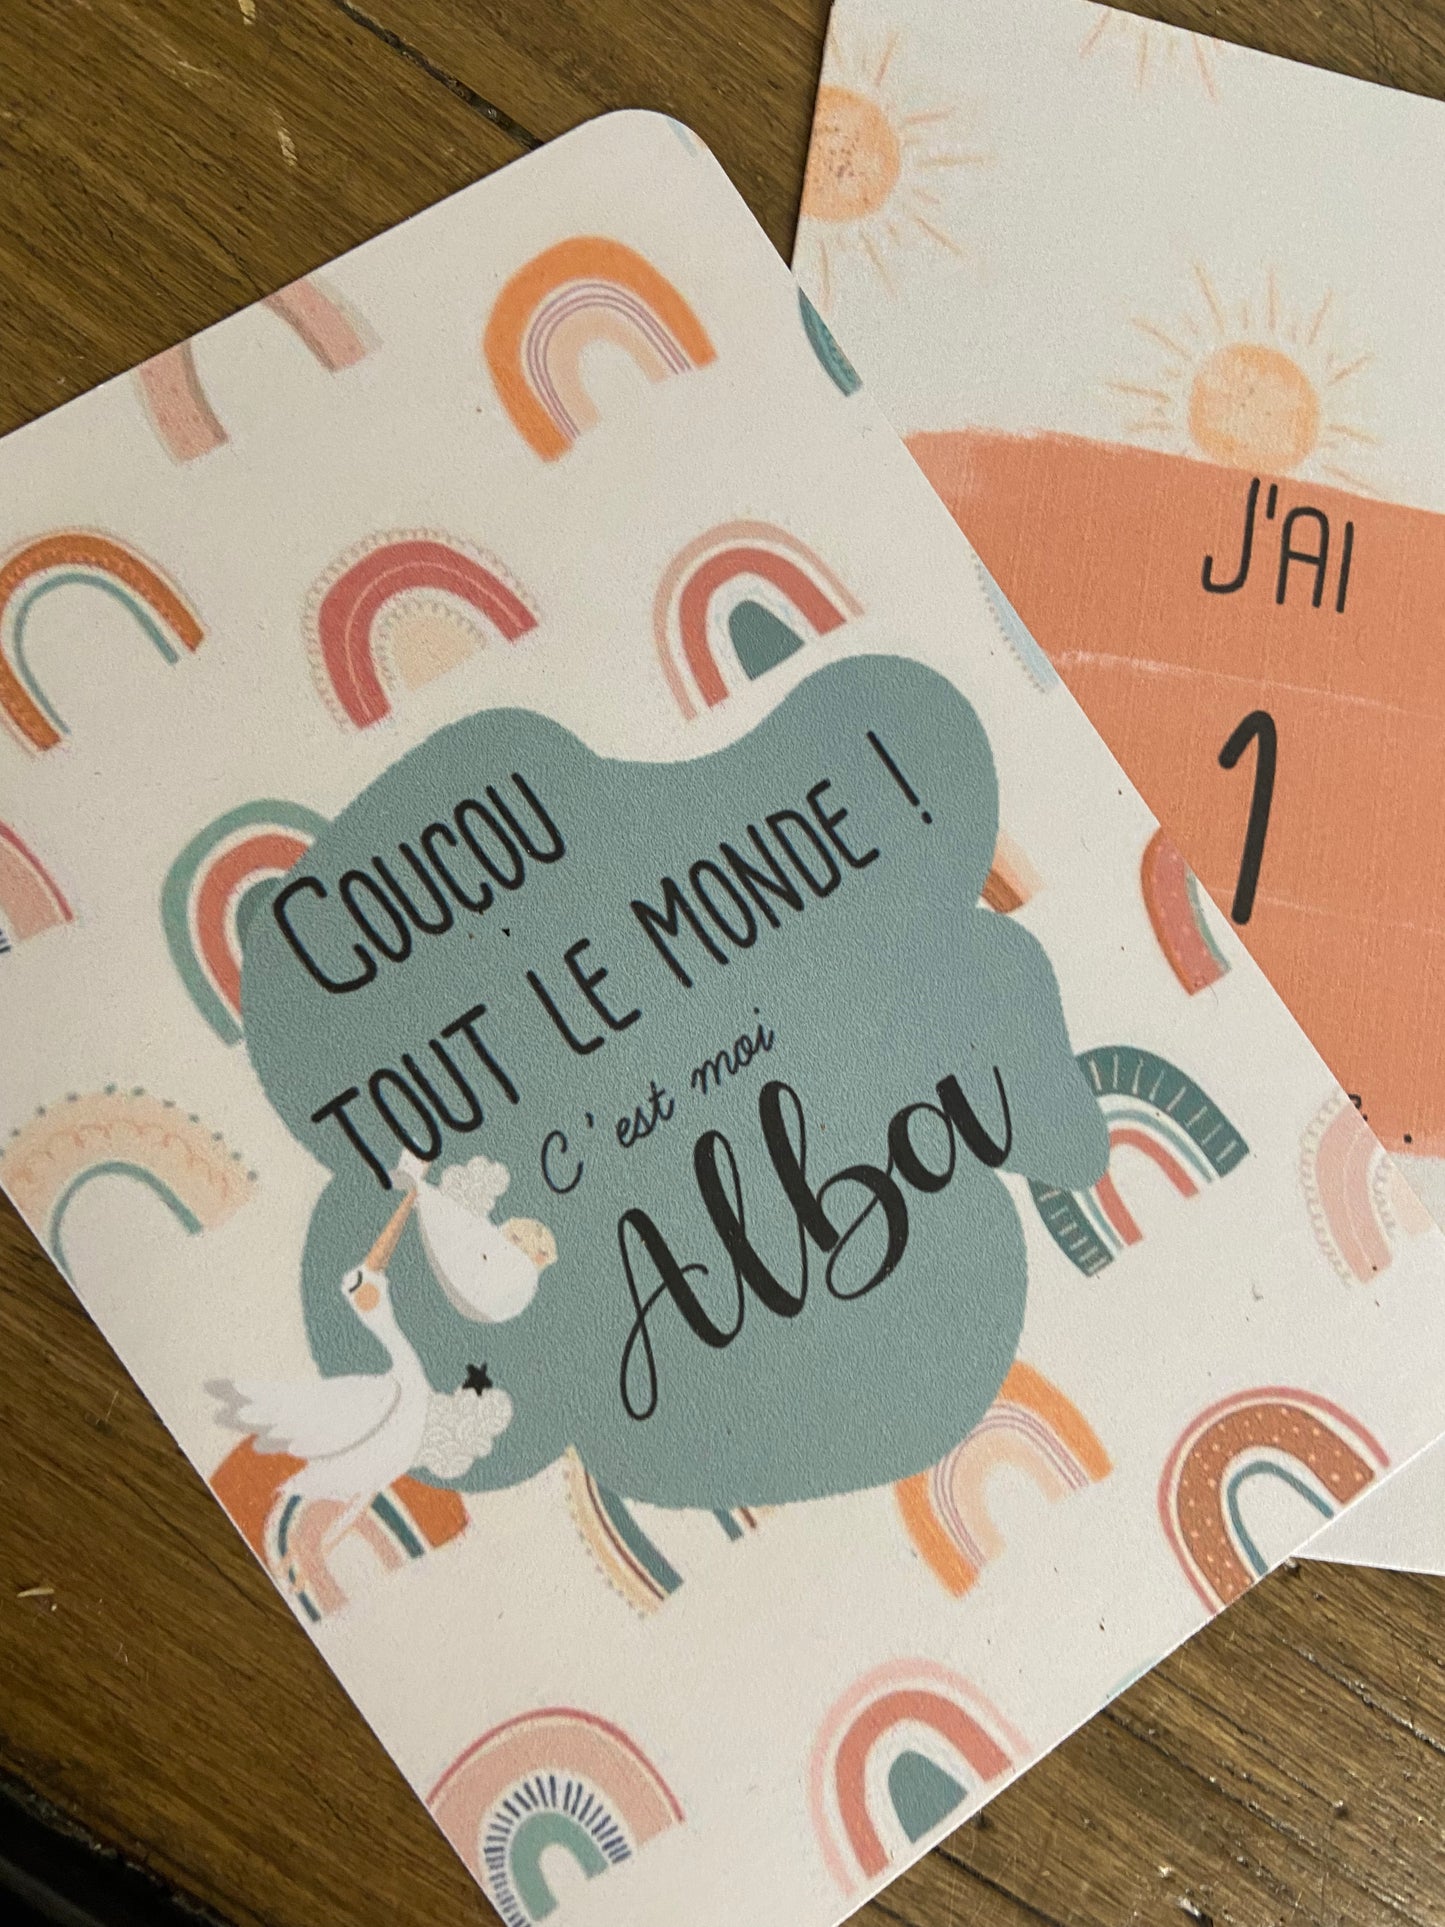 COUCOU
TOUT LE MONDE !
C'est moi
Alba
J'AI
1